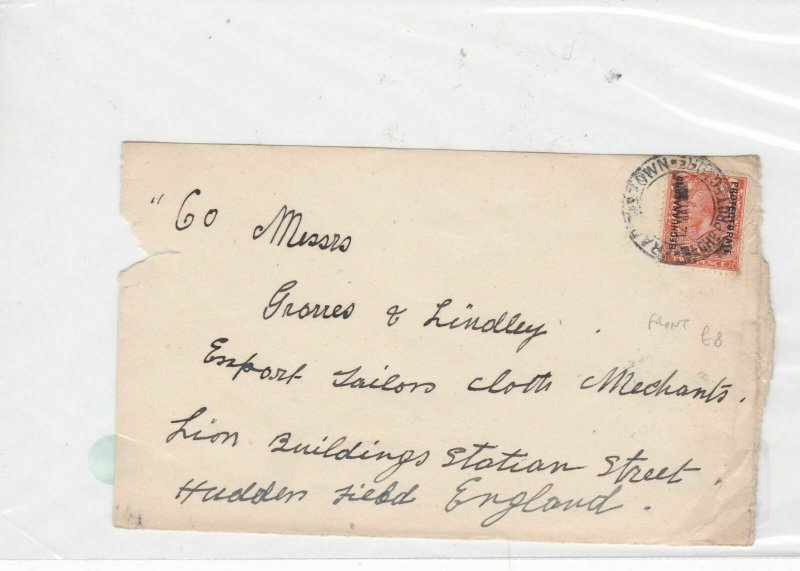 "Co Messrs
Groves & Lindley.
Export Tailors Cloth Mechants.
Lion Buildings Station Street.
Hudders field England.
FRONT £8
BECHUANALAND
PROTECTORATE